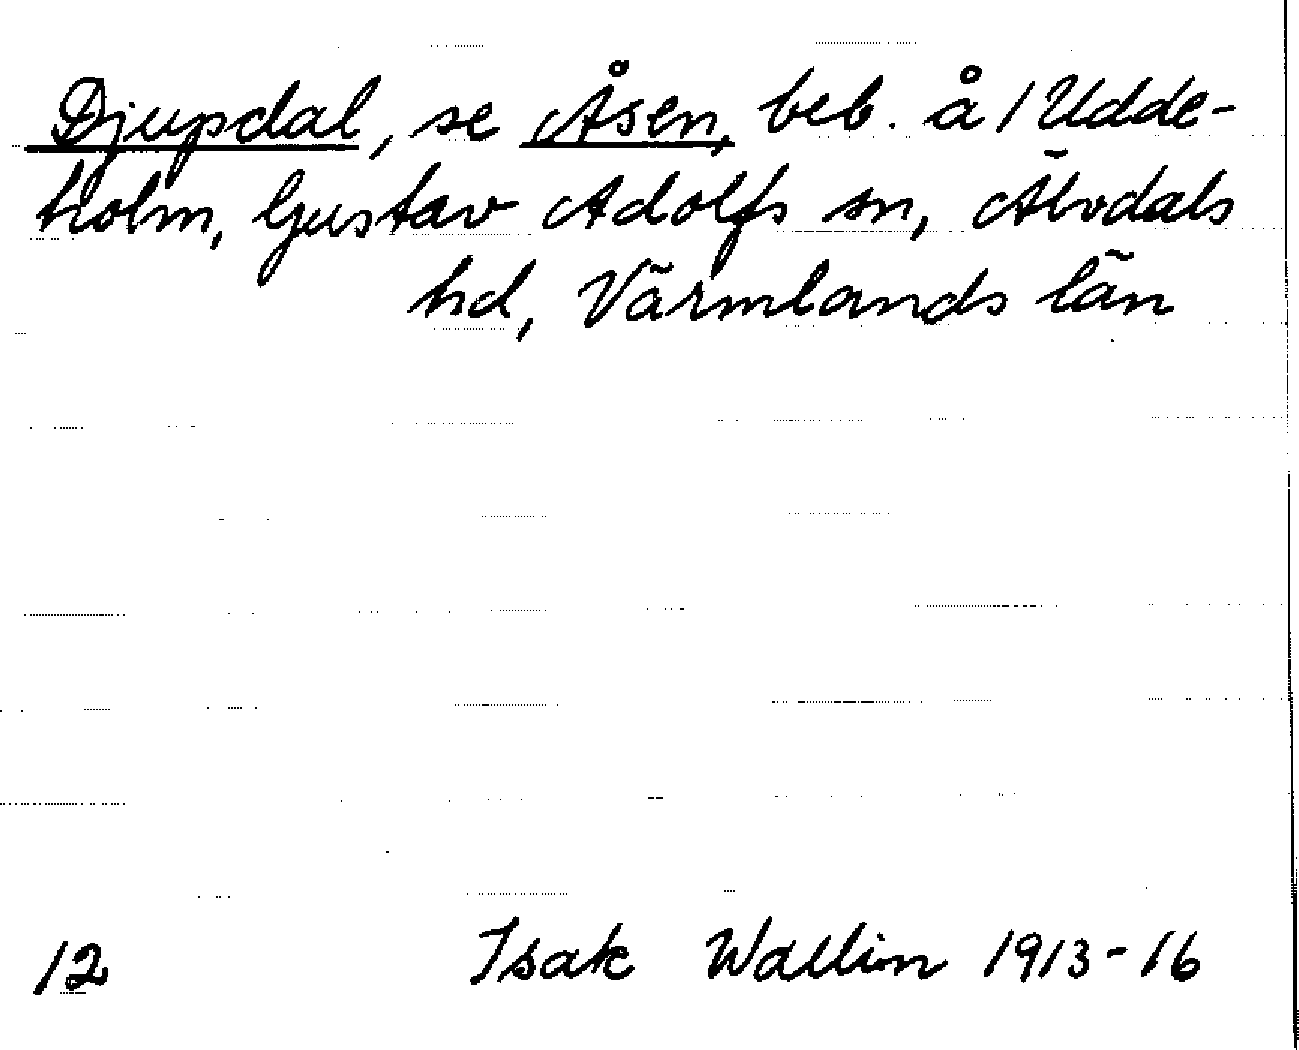 Djupdal, se Åsen, beb. å 1 Udde-
holm, Gustav Adolfs sn, Älvdals
hd, Värmlands län
12 Isak Wallin 1913-16